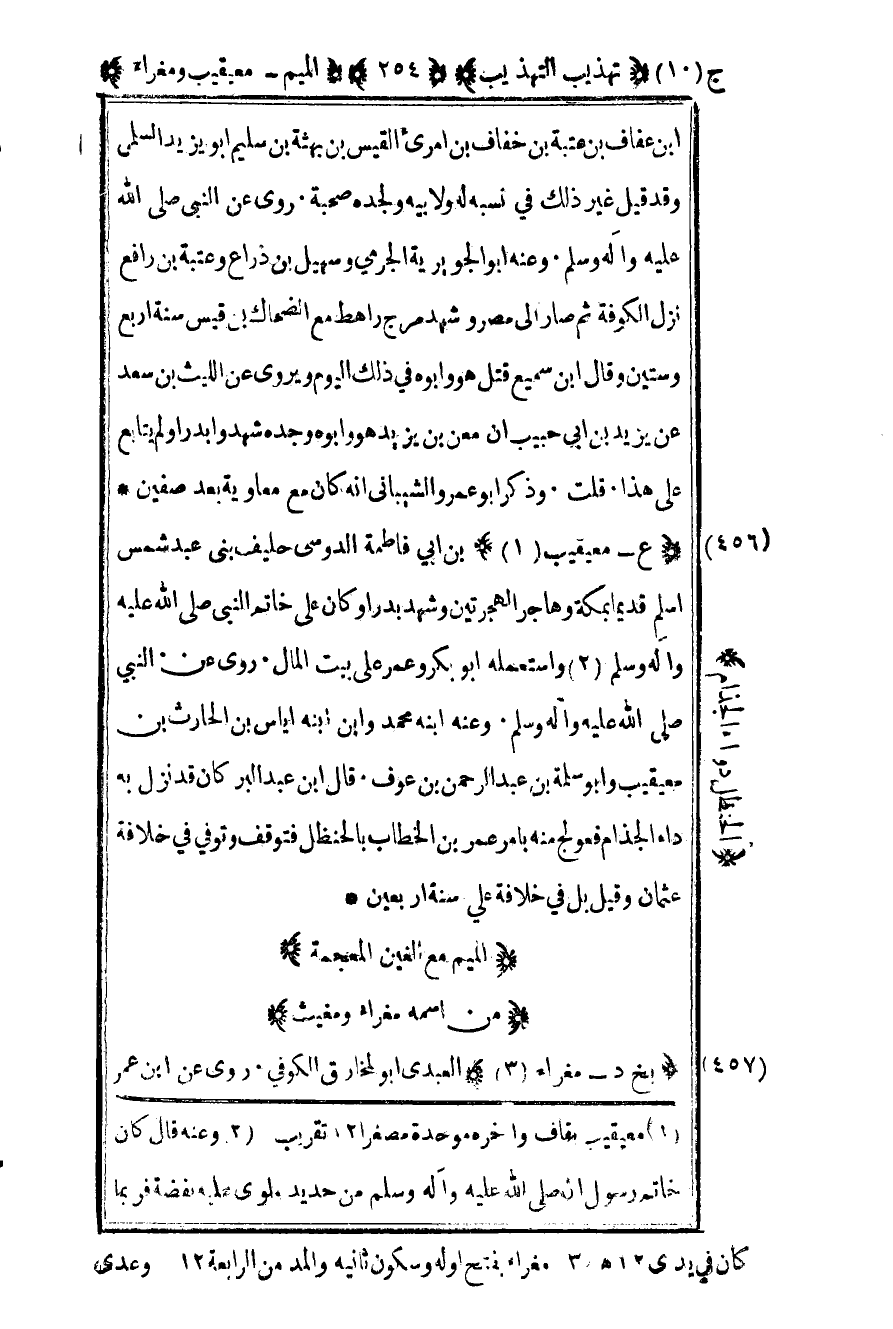 ج (١٠) ﴿ تهذيب التهذيب ﴾ ﴿ ٢٥٤ ﴾ ﴿ الميم ـ معيقيب ومغراء ﴾
ابن عفاف بن عتبة بن خفاف بن امرئ القيس بن بهثة بن سليم ابو يزيد السلمى
وقد قيل غير ذلك في نسبه له ولابيه ولجده صحبة ٠ روى عن النبي صلى الله
عليه وآله وسلم ٠ وعنه ابو الجويرية الجرمي وسهيل بن ذراع وعتبة بن رافع
نزل الكوفة ثم صار الى مصر و شهد مرج راهط مع الضحاك بن قيس سنة اربع
وستين وقال ابن سميع قتل هو وابوه في ذلك اليوم ويروى عن الليث بن سعد
عن يزيد بن ابي حبيب ان معن بن يزيد هو وابوه وجده شهدوا بدرا ولم يتابع
على هذا ٠ قلت ٠ وذكر ابو عمرو الشيبانى انه كان مع معاوية بعد صفين *
(٤٥٦) ﴿ ع ـ معيقيب (١) ﴾ بن ابي فاطمة الدوسى حليف بنى عبد شمس
اسلم قديما بمكة وهاجر الهجرتين وشهد بدرا وكان على خاتم النبي صلى الله عليه
وآله وسلم (٢) واستعمله ابو بكر وعمر على بيت المال ٠ روى عن النبي
صلى الله عليه وآله وسلم ٠ وعنه ابنه محمد وابن ابنه اياس بن الحارث بن
معيقيب وابو سلمة بن عبد الرحمن بن عوف ٠ قال ابن عبد البر كان قد نزل به
داء الجذام فعولج منه بامر عمر بن الخطاب بالحنظل فتوقف وتوفي في خلافة
عثمان وقيل بل في خلافة علي سنة اربعين *
﴿ الحنظل دواء الجذام ﴾
﴿ الميم مع الغين المعجمة ﴾
﴿ من اسمه مغراء ومغيث ﴾
(٤٥٧) ﴿ بخ د ـ مغراء (٣) ﴾ العبدى ابو المخارق الكوفي ٠ روى عن ابن عمر
(١) معيقيب بقاف وآخره موحدة مصغرا ١٢ تقريب (٢) وعنه قال كان
خاتم رسول الله صلى الله عليه وآله وسلم من حديد ملوى عليه بفضة فربما
كان في يدى ١٢ ه ٣ مغراء بفتح اوله وسكون ثانيه والمد من الرابعة ١٢ وعدى